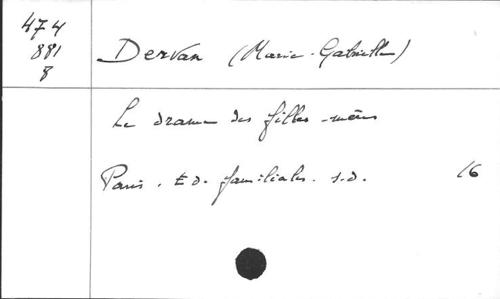 474
881
8
Dervan (Marie-Gabrielle)
Le drame des filles-mères
Paris. Ed. familiales. s.d. 16